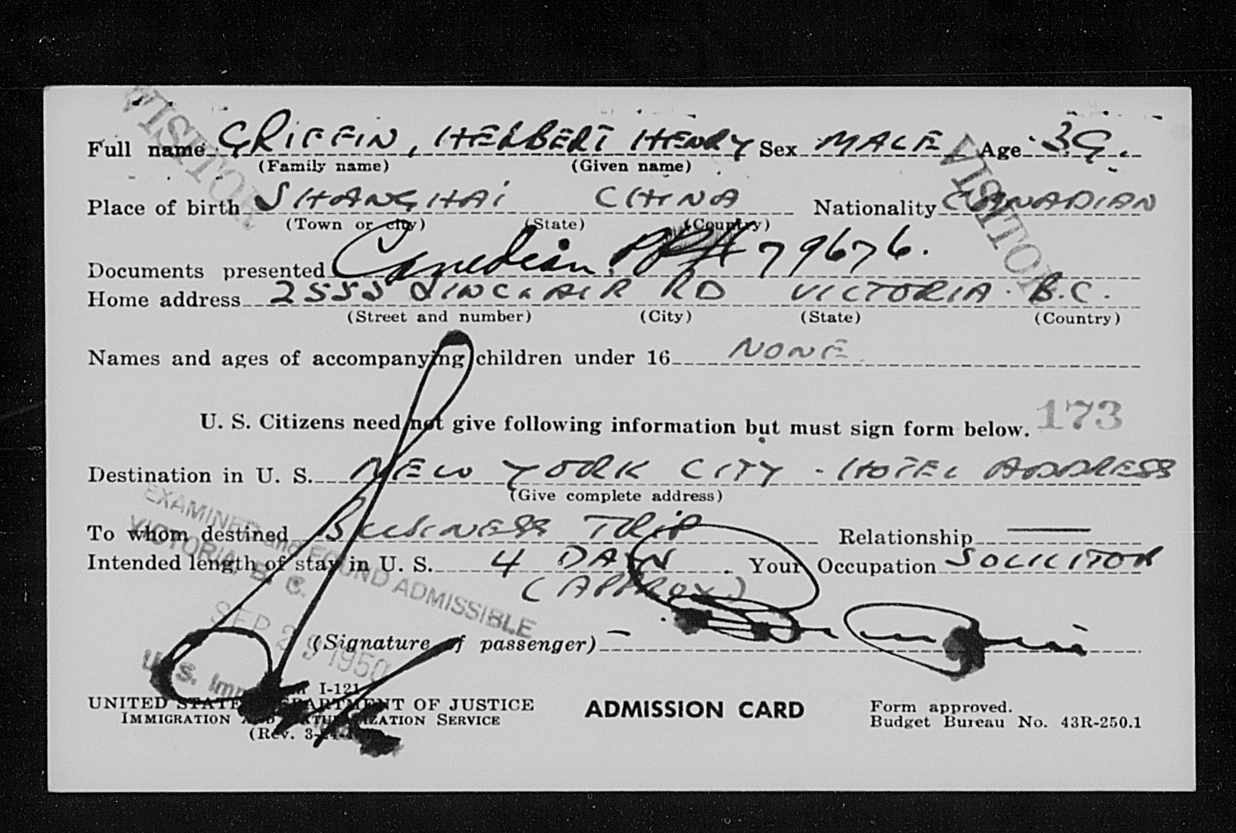 VISITOR
VISITOR
Full name GRIFFIN, HERBERT HENRY Sex MALE Age 39.
(Family name) (Given name)
Place of birth SHANGHAI CHINA Nationality CANADIAN
(Town or city) (State) (Country)
Documents presented Canadian 79676.
Home address 2555 SINCLAIR RD VICTORIA B.C.
(Street and number) (City) (State) (Country)
Names and ages of accompanying children under 16 NONE
U. S. Citizens need not give following information but must sign form below. 173
Destination in U. S. NEW YORK CITY - HOTEL ADDRESS
(Give complete address)
To whom destined BUSINESS TRIP Relationship
Intended length of stay in U. S. 4 DAYS Your Occupation SOLICITOR
(APPROX)
EXAMINED and FOUND ADMISSIBLE
VICTORIA, B. C.
SEP 29 1950
U. S. Imm
(Signature of passenger)
I-121
UNITED STATES DEPARTMENT OF JUSTICE
IMMIGRATION AND NATURALIZATION SERVICE
(Rev.
ADMISSION CARD
Form approved.
Budget Bureau No. 43R-250.1